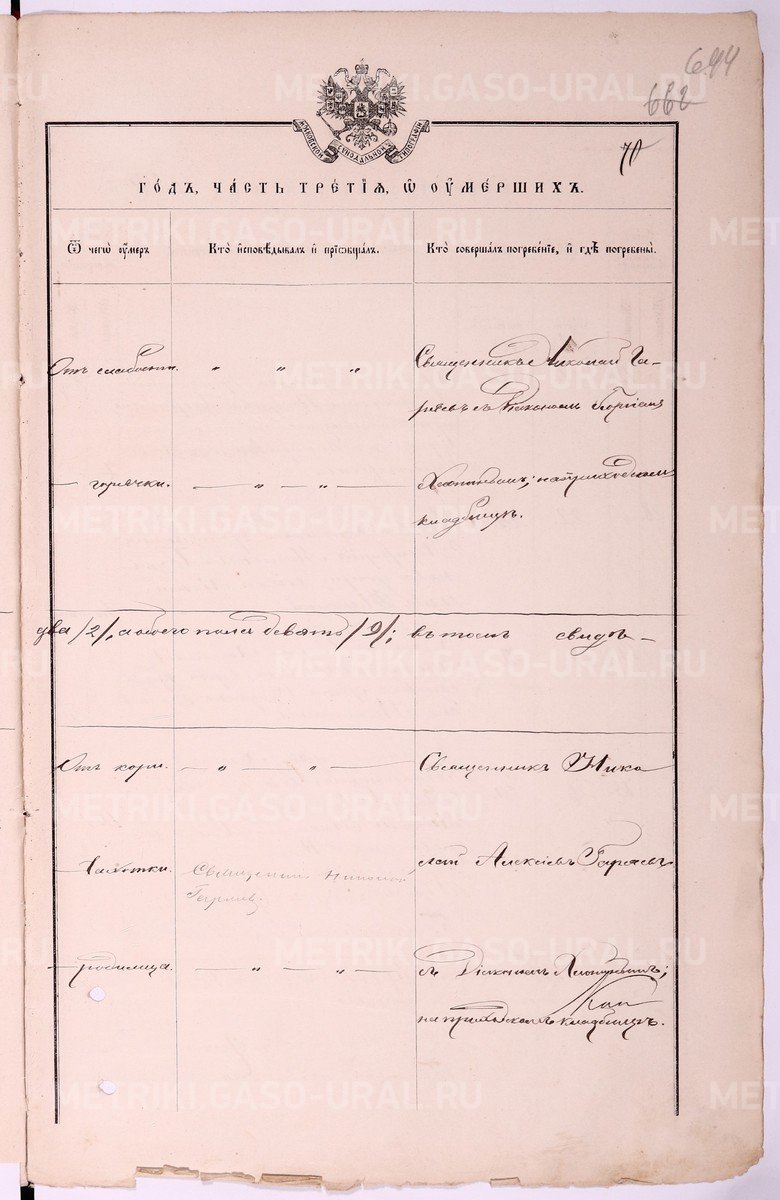 644
662
МОСКОВСКОЙ СѴНОДАЛЬНОЙ ТИПОГРАФІИ
70
ГО́ДЪ, ЧА́СТЬ ТРЕ́ТІѦ, Ѡ҆ ОУ҆МЕ́РШИХЪ.
Ѿ чегѡ̀ оу҆́меръ
Кто̀ и҆сповѣ́дывалъ и҆ прїѡбща́лъ.
Кто̀ соверша́лъ погребе́нїе, и҆ гдѣ̀ погребены̀.
Отъ слабости. „ „ „ Священникъ Николай Га-
ряевъ съ Діакономъ Георгіемъ
— горячки. — „ — „ —
на приходскомъ
кладбищѣ.
два /2/, а обоего пола девять /9/; въ томъ свидѣ-
Отъ кори. — „ — „ — Священникъ Нико
лай Алексіевъ Гаряевъ
Священникъ Николай
Гаряев.
— родимца. — „ — „ — съ Діакономъ
на приходскомъ кладбищѣ.
METRIKI.GASO-URAL.RU